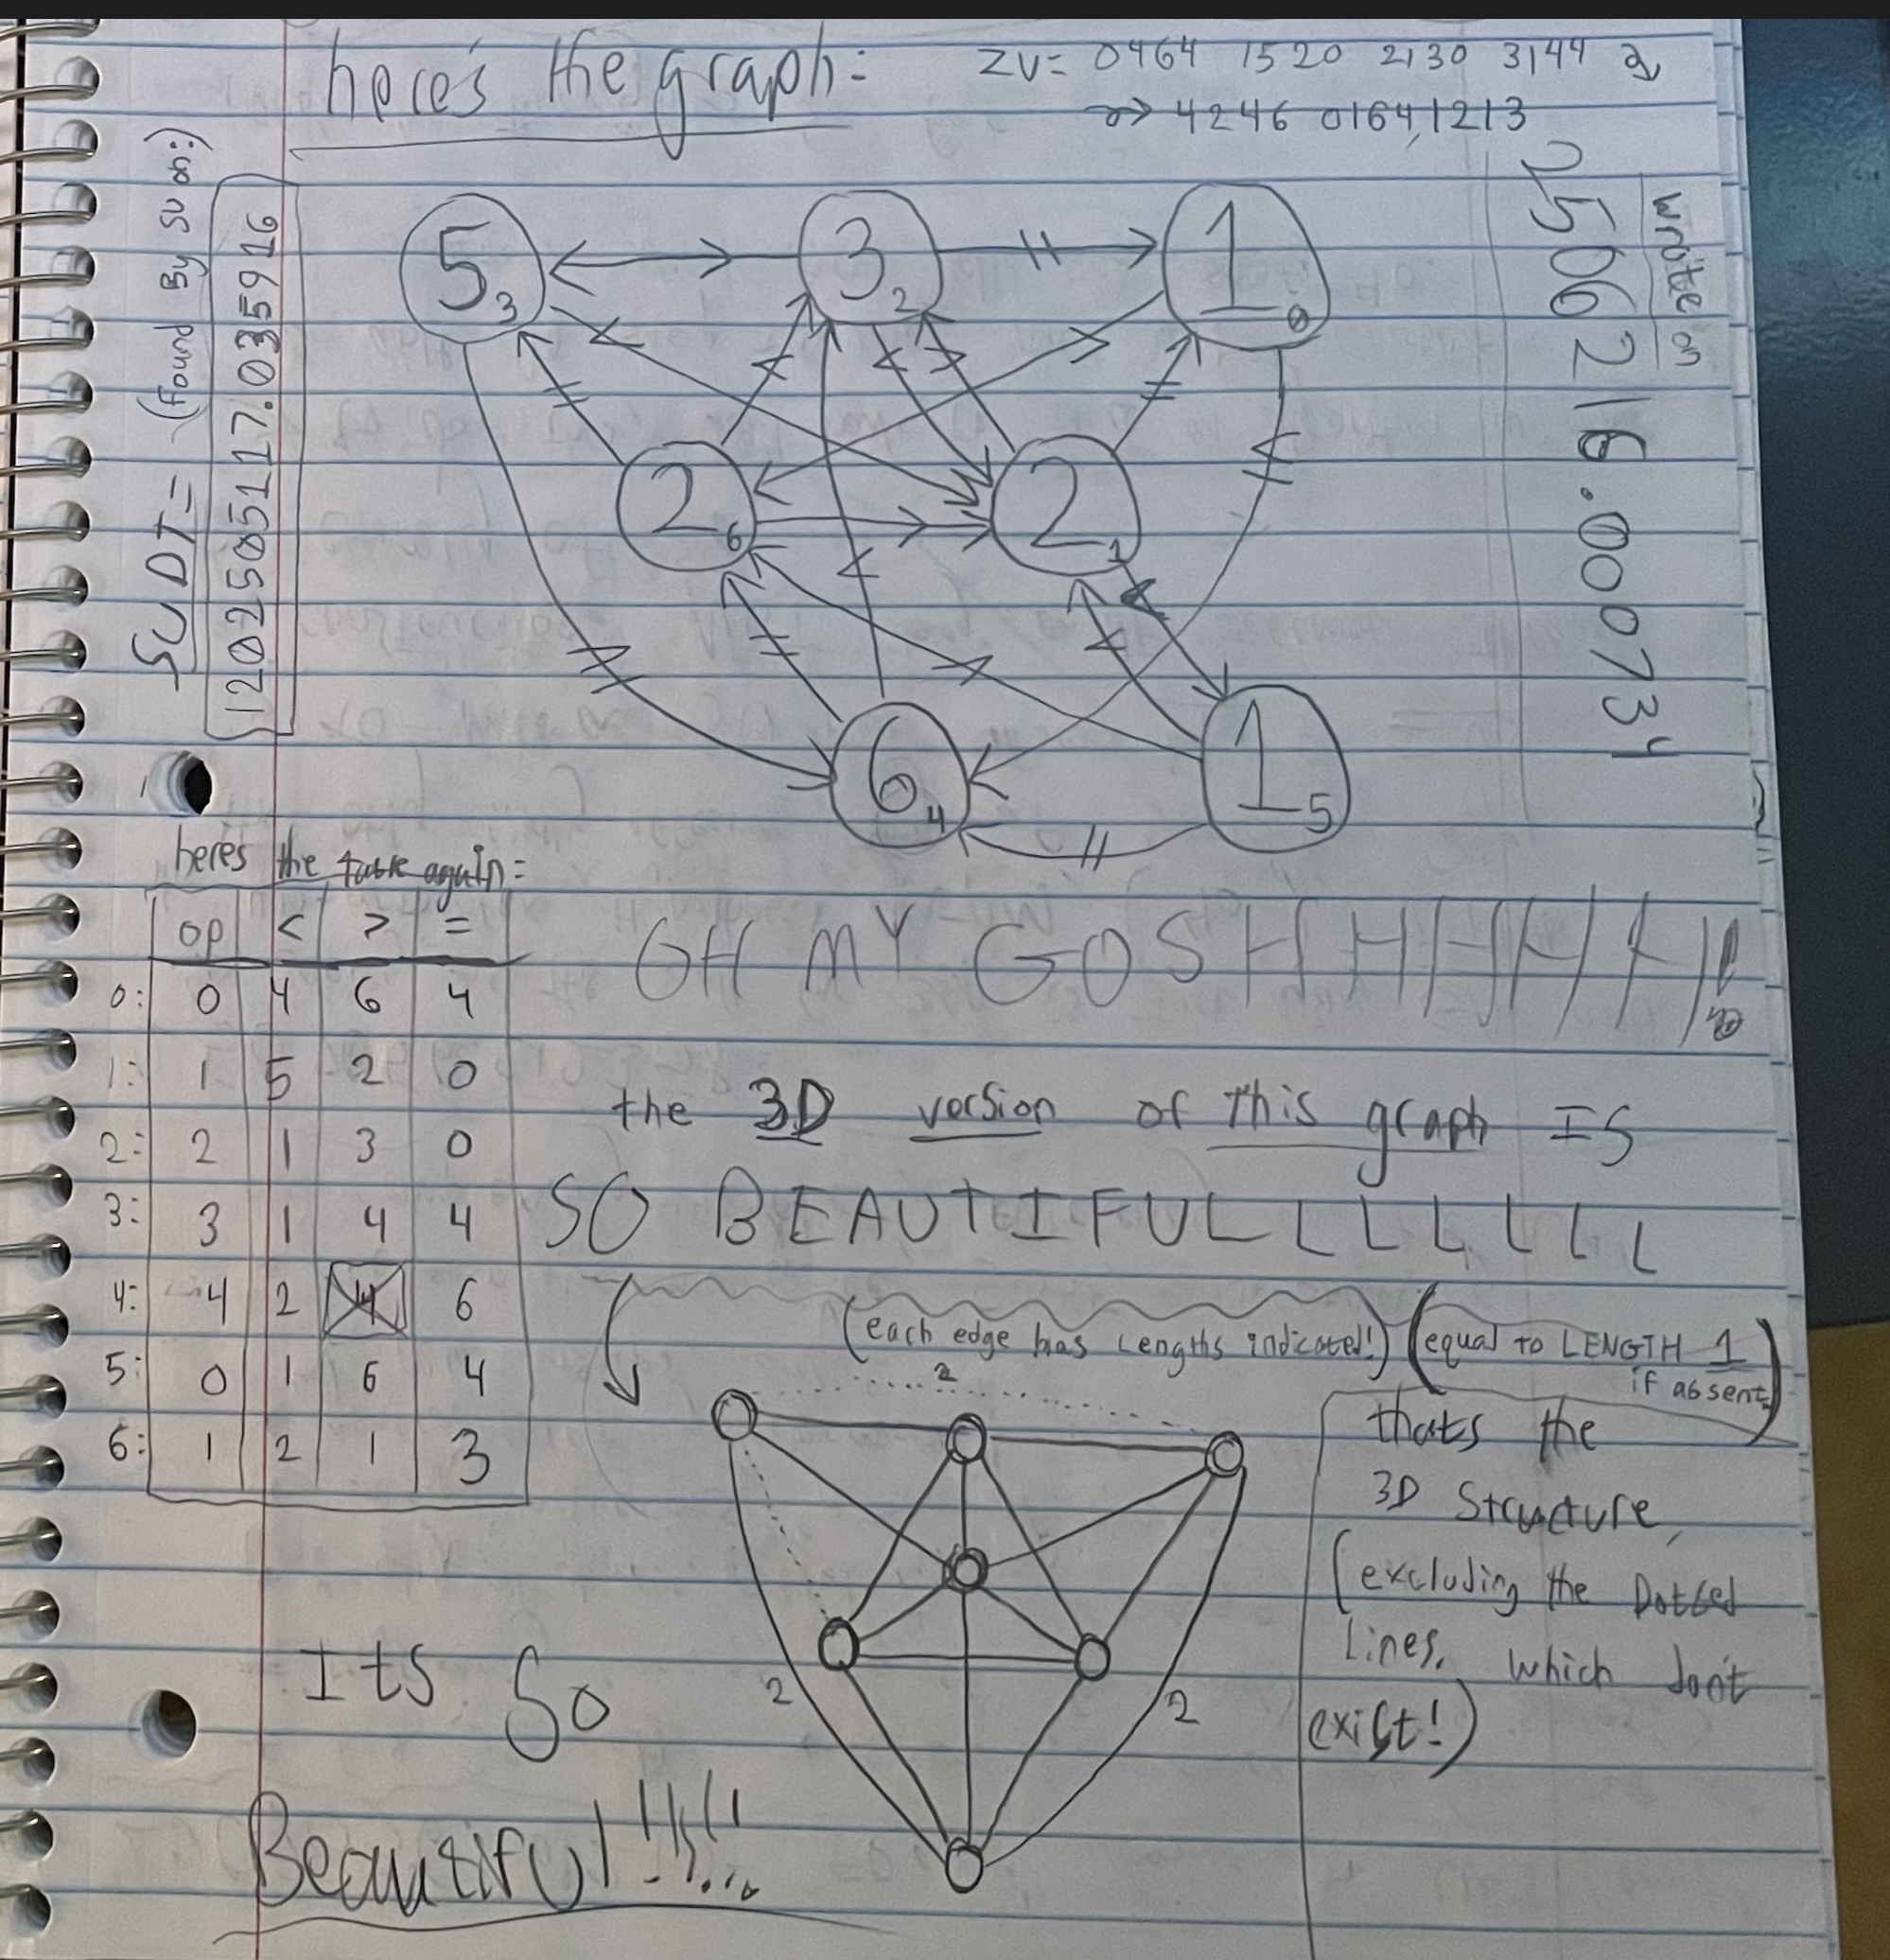 here's the graph:
ZV= 0464 1520 2130 3144
4246 0164 1213
SUDT= (found By SU on:)
1202505117.035916
wrote on
2506216.000734
5 3
3 2
1 0
2 6
2 1
6 4
1 5
heres the table again:
op < > =
0: 0 4 6 4
1: 1 5 2 0
2: 2 1 3 0
3: 3 1 4 4
4: 4 2 4 6
5: 0 1 6 4
6: 1 2 1 3
OH MY GOSHHHHHH
the 3D version of this graph IS
SO BEAUTIFULLLLLLL
(each edge has Lengths indicated!) (equal to LENGTH 1
if absent)
2
2
2
thats the
3D Structure,
(excluding the Dotted
Lines, which don't
exist!)
Its So
Beautiful!!!!!...